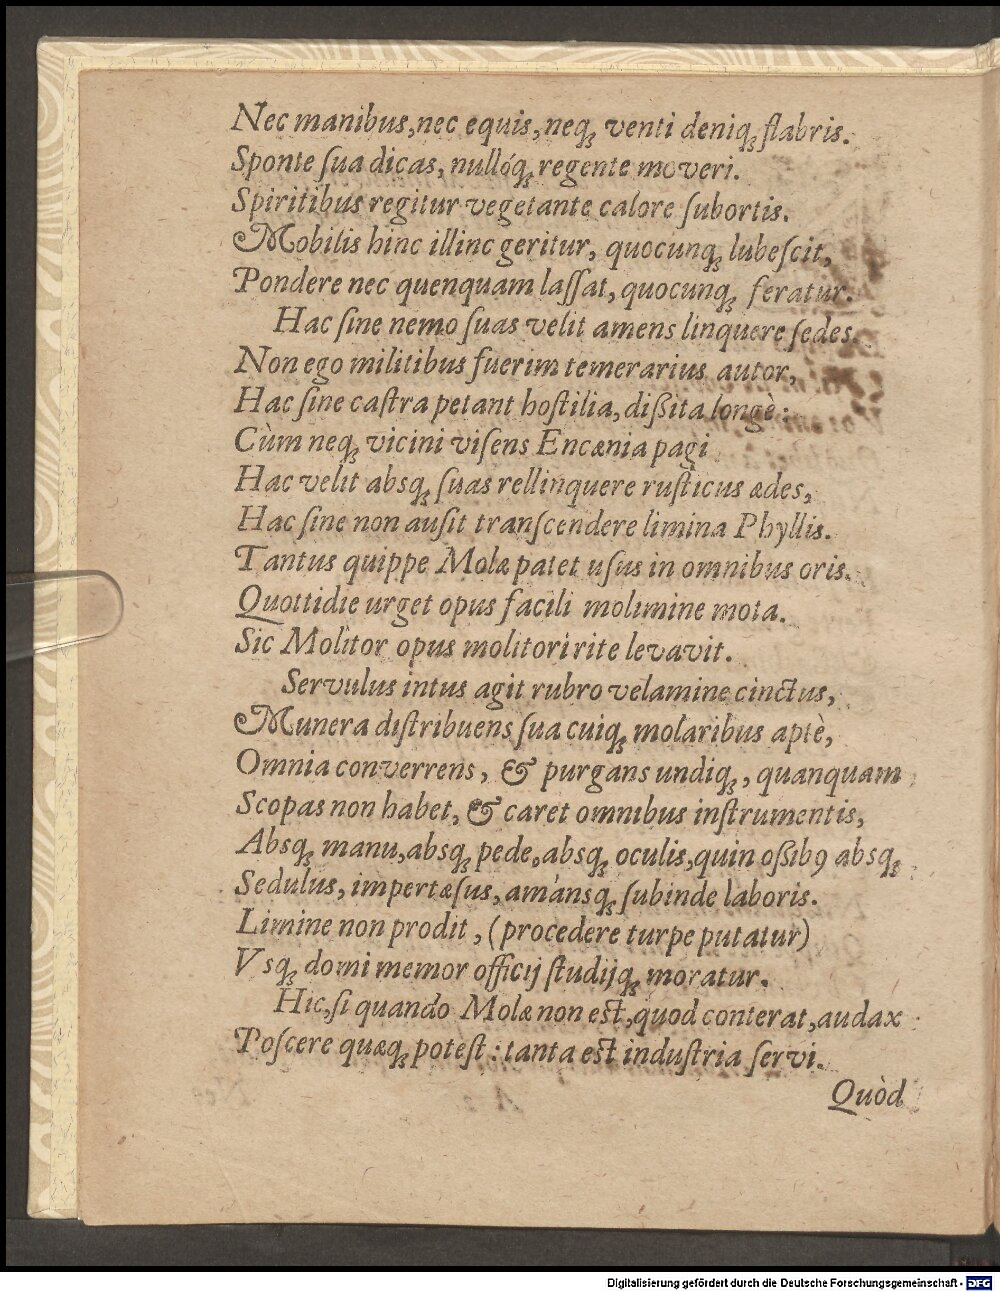 Nec manibus, nec equis, neq́; venti deniq́; flabris.
Sponte ſua dicas, nullóq́; regente moveri.
Spiritibus regitur vegetante calore ſubortis.
Mobilis hinc illinc geritur, quocunq́; lubeſcit,
Pondere nec quenquam laſſat, quocunq́; feratur.
Hac ſine nemo ſuas velit amens linquere ſedes.
Non ego militibus fuerim temerarius autor,
Hac ſine caſtra petant hoſtilia, dißita longè:
Cùm neq́; vicini viſens Encænia pagi
Hac velit absq́; ſuas rellinquere ruſticus ædes,
Hac ſine non auſit tranſcendere limina Phyllis.
Tantus quippe Molæ patet uſus in omnibus oris.
Quottidie urget opus facili molimine mota.
Sic Molitor opus molitori rite levavit.
Servulus intus agit rubro velamine cinctus,
Munera diſtribuens ſua cuiq́; molaribus aptè,
Omnia converrens, & purgans undiq́;, quanquam
Scopas non habet, & caret omnibus inſtrumentis,
Absq́; manu, absq́; pede, absq́; oculis, quin oßibꝰ absq́;
Sedulus, impertæſus, amánsq́; ſubinde laboris.
Limine non prodit, (procedere turpe putatur)
Vsq́; domi memor officij ſtudijq́; moratur.
Hic, ſi quando Molæ non est, quod conterat, audax
Poſcere quæq́; poteſt: tanta est induſtria ſervi.
Quòd
Digitalisierung gefördert durch die Deutsche Forschungsgemeinschaft - DFG